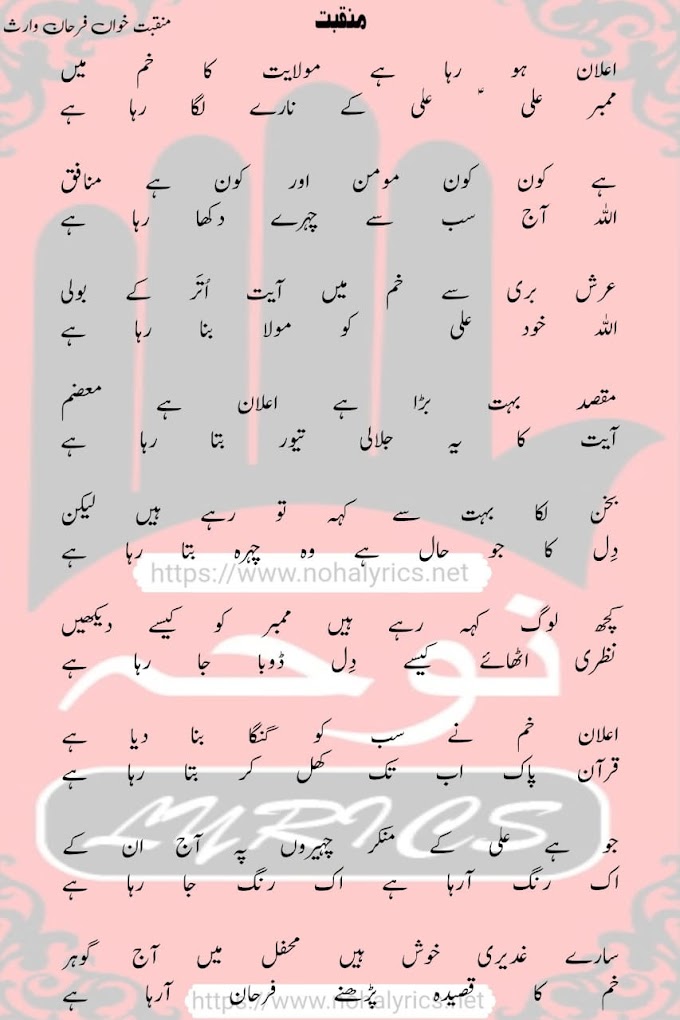 منقبت
منقبت خواں فرحان وارث
اعلان ہو رہا ہے مولایت کا خم میں
ممبر علی ؑ علی کے نارے لگا رہا ہے
ہے کون کون مومن اور کون ہے منافق
اللہ آج سب سے چہرے دکھا رہا ہے
عرش بری سے خم میں آیت اُتَر کے بولی
اللہ خود علی کو مولا بنا رہا ہے
مقصد بہت بڑا ہے اعلان ہے معضم
آیت کا یہ جلالی تیور بتا رہا ہے
بخن لکا بہت سے کہہ تو رہے ہیں لیکن
دِل کا جو حال ہے وہ چہرہ بتا رہا ہے
https://www.nohalyrics.net
کچھ لوگ کہہ رہے ہیں ممبر کو کیسے دیکھیں
نظری اٹھائے کیسے دِل ڈوبا جا رہا ہے
نوحہ
اعلان خم نے سب کو گنگا بنا دیا ہے
قرآن پاک اب تک کھل کر بتا رہا ہے
LYRICS
جو ہے علی کے منکر چہیروں پہ آج ان کے
اک رنگ آرہا ہے اک رنگ جا رہا ہے
سارے غدیری خوش ہیں محفل میں آج گوہر
خم کا قصیدہ پڑھنے فرحان آرہا ہے
https://www.nohalyrics.net